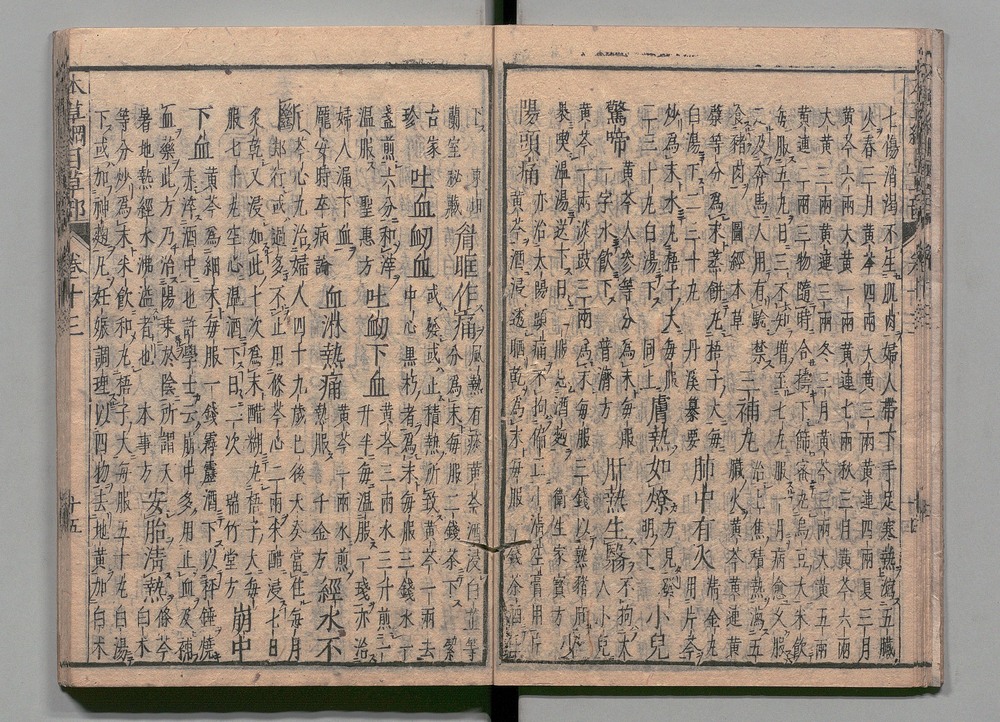 七傷消渴不生肌肉婦人帶下手足寒熱瀉五臟
火春三月黃芩四兩大黃三兩黃連四兩夏三月
黃芩六兩大黃一兩黃連七兩秋三月黃芩六兩
大黃二兩黃連三兩冬三月黃芩三兩大黃五兩
黃連二兩三物隨時合擣下篩蜜丸烏豆大米飲
每服五丸日三不知增至七丸服一月病愈久服
走及奔馬人用有驗禁
食豬肉圖經本草 三補丸 治上焦積熱瀉五
臟火黃芩黃連黃
蘗等分為末蒸餅丸梧子大每
白湯下二三十丸丹溪纂要 肺中有火 用片芩
炒為末水丸梧子大每服
二三十丸白湯下同上 膚熱如燎 方見發明下 小兒
驚啼 黃芩人參等分為末每服
一字水飲下普濟方 肝熱生翳 不拘大人小兒
黃芩一兩淡豉三兩為末每服三錢以熟豬肝
裹喫溫湯送下日二服忌酒麪衛生家寶方 少
陽頭痛 亦治太陽頭痛不拘偏正小清空膏用片
黃芩酒浸透晒乾為末每服一錢茶酒任
下東垣
蘭室秘藏 眉眶作痛 風熱有痰黃芩酒浸白芷等
分為末每服二錢茶下潔
古家
珍 吐血衂血 或發或止積熱所致黃芩一兩去
中心黑朽者為末每服三錢水一
盞煎六分和滓
溫服聖惠方 吐衂下血 黃芩三兩水三升煎一
升半每溫服一盞亦治
婦人漏下血
龐安時卒病論 血淋熱痛 黃芩一兩水煎
熱服千金方 經水不
斷 芩心丸治婦人四十九歲已後天癸當住每月
却行或過多不止用條芩心二兩米醋浸七日
炙乾又浸如此七次為末醋糊丸梧子大每
服七十丸空心溫酒下日二次瑞竹堂方 崩中
下血 黃芩為細末每服一錢霹靂酒下以秤錘燒
赤淬酒中也許學士云崩中多用止血及補
血藥此方乃治陽乘於陰所謂天
暑地熱經水沸溢者也本事方 安胎清熱 條芩白朮
等分炒為末米飲和丸梧子大每服五十丸白湯
下或加神麴凡妊娠調理以四物去地黃加白朮
本草綱目草部 卷十三 十五